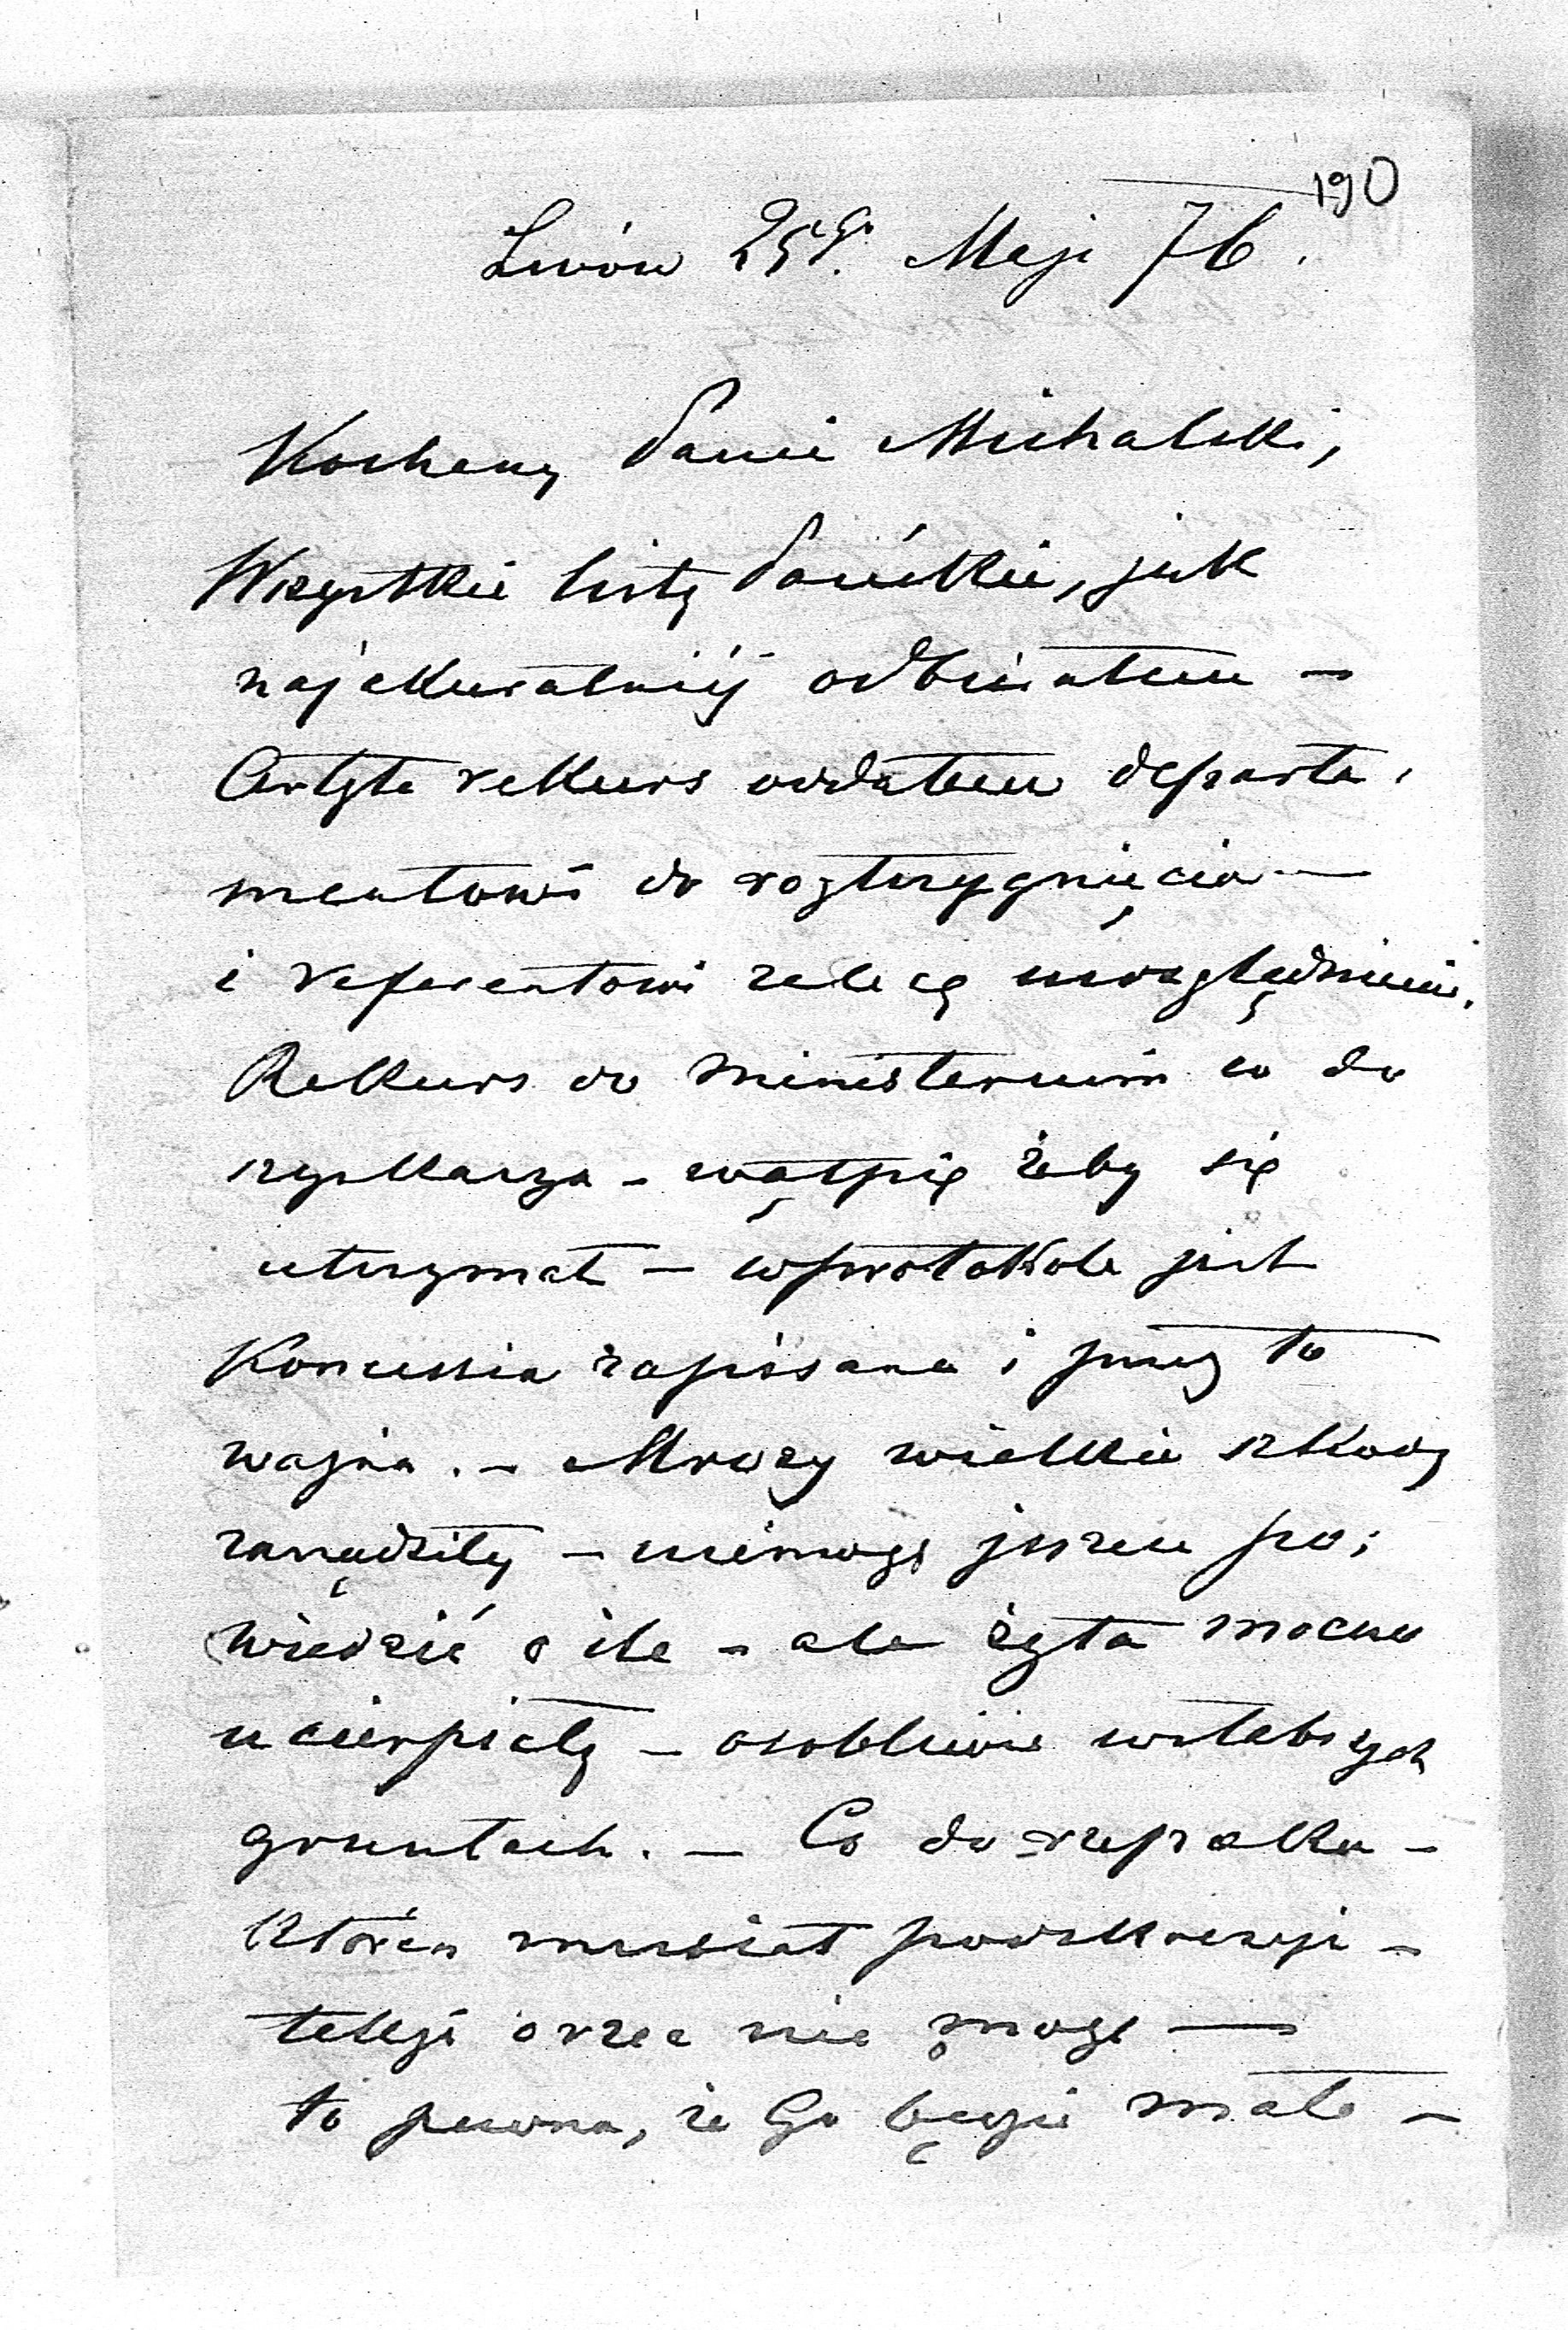 190
Lwów 25go Maji 76.
Kochany Panie Michalski,
Wszystkie listy Pańskie, jak
najakuratniéj odbiałem —
rekurs oddałem departa-
mentowi do rozstrzygnięcia —
i referentowi zalecę uwzględnienie.
Rekurs do ministerium co do
szynkarza - wątpię żeby się
utrzymał — w protokole jest
Koncessia zapisana i przez to
ważna. — Mrozy wielkie szkody
zarządziły — niemogę jeszcze po,
wiedzić o ile - ale żyta mocno
ucierpiały — osobliwie w słabszych
gruntach. — Co do rzepaku -
który musiał
orzec nie mogę —
to pewna, że Go będzie mało —